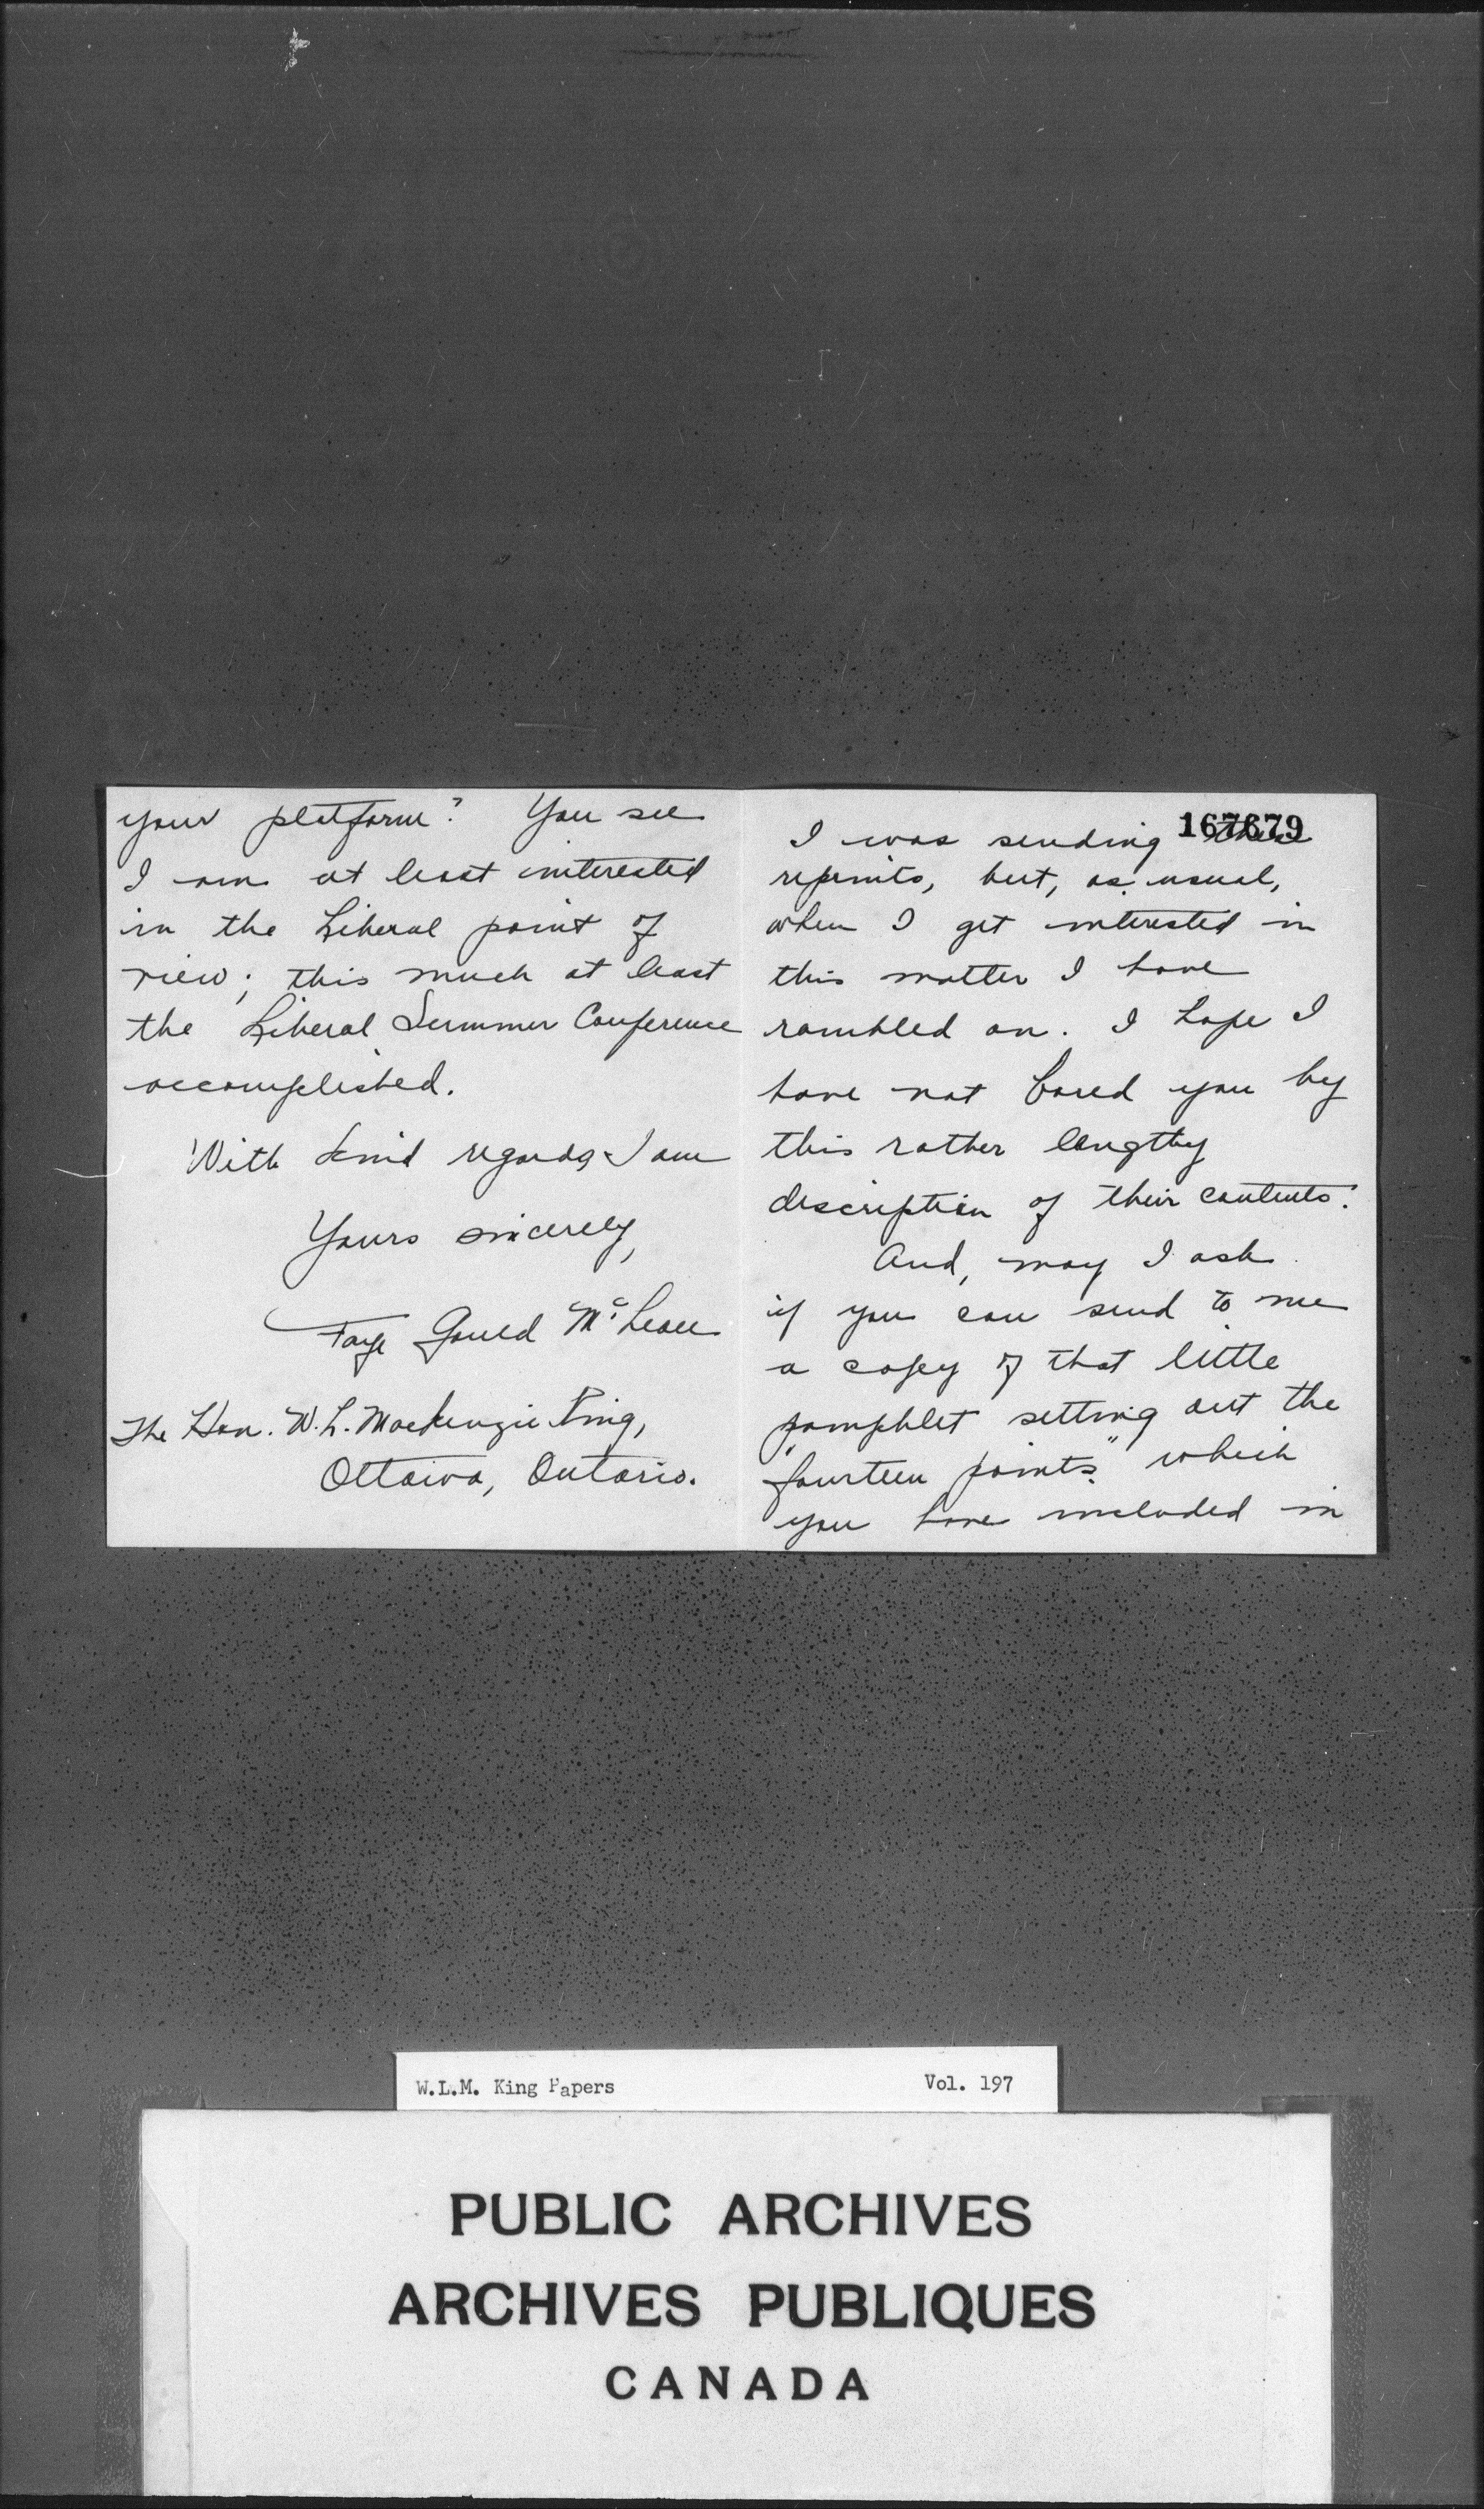 your platform? You see
I am at least interested
in the Liberal point of
view; this much at least
the Liberal Summer Conference
accomplished.
With kind regards I am
Yours sincerely,
Faye Gould McLean
The Hon. W. L. Mackenzie King,
Ottawa, Ontario.
167679
I was sending these
reprints, but, as usual,
when I get interested in
this matter I have
rambled on. I hope I
have not bored you by
this rather lengthy
description of their contents.
And, may I ask
if you can send to me
a copy of that little
pamphlet setting out the
"fourteen points" which
you have included in
W.L.M. King Papers Vol. 197
PUBLIC ARCHIVES
ARCHIVES PUBLIQUES
CANADA